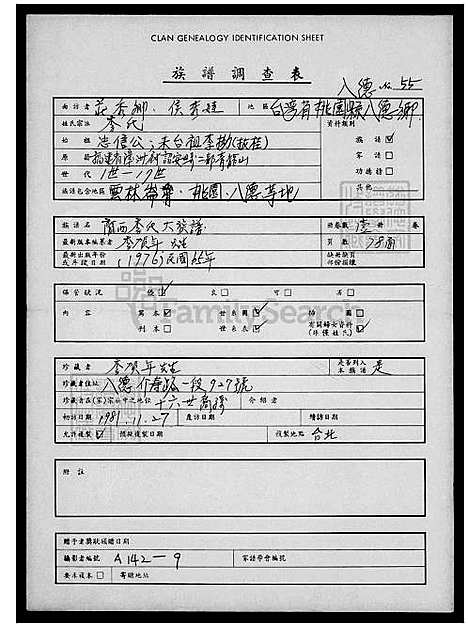 CLAN GENEALOGY IDENTIFICATION SHEET
族譜調查表
八德 No 55
面訪者 侯 地區 台灣省桃園縣八德鄉
姓氏宗派 李氏 資料類別
始祖 忠信公；來台祖李 族譜 ☑
原籍 福建省漳州府詔安 二都青 家譜 □
功德榜 □
世代 1世—19世 其他
族譜包含地區 雲林崙背、桃園、八德等地
族譜名 隴西李氏大族譜 冊卷數 壹 冊 卷
最新版本編纂者 李 年 先生 頁數 78面
最新出版年份或手抄日期 (1976)民國65年 缺冊缺頁部份損壞
保管狀況 優 ☑ 良 □ 可 □ 劣 □
內容 寫本 ☑ 世系圖 ☑ 插圖 □
刊本 □ 世系表 ☑ 有關婦女資料(外僅姓氏) ☑
FamilySearch
珍藏者 李 年先生 是否列入本族譜 是
珍藏者住址 八德 介壽路一段927號
珍藏者在(家)宗祠中之地位 十六世裔孫 介紹者
初訪日期 1981.11.27 複訪日期 續訪日期
允許複製 ☑ 預擬複製日期 複製地點 台北
附註
贈予者獎狀頒贈日期
攝影者編號 A142—9 家譜學會編號
要求複本 □ 寄贈地址